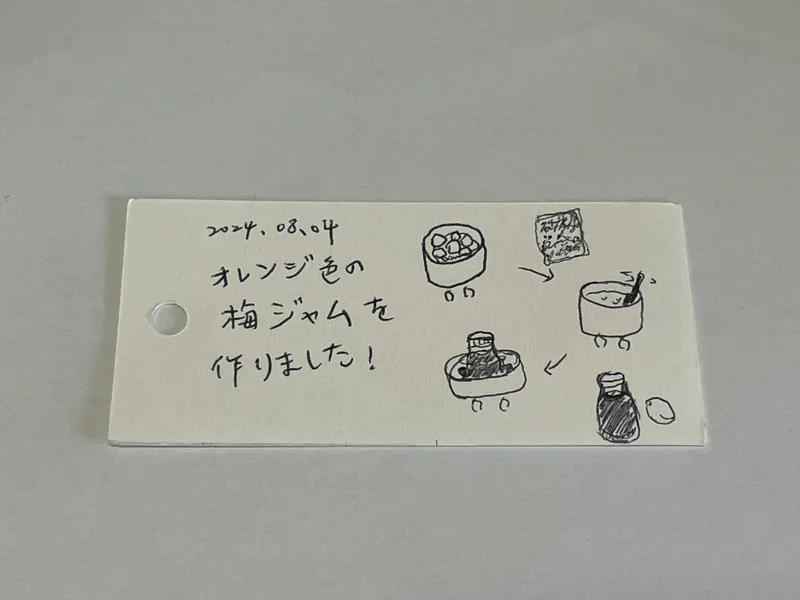 2024.08.04
オレンジ色の
梅ジャムを
作りました!